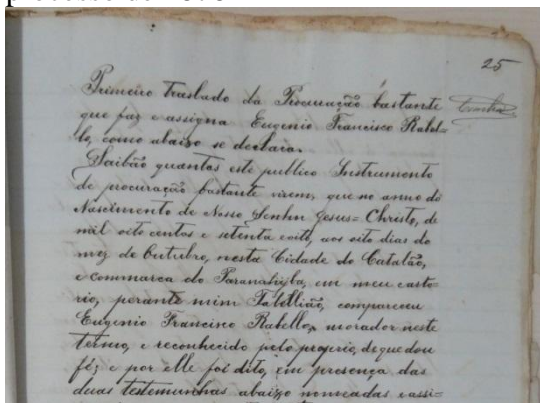 25
Primeiro Traslado da Procuração bastante
que faz e assigna Eugenio Francisco Rabel=
lo, como abaixo se declara.
Saibão quantos este publico Instrumento
de procuração bastante virem, que no anno do
Nascimento de Nosso Senhor Jesus=Christo, de
mil oito centos e setenta e oito, aos oito dias do
mez de Outubro, nesta Cidade do Catalão,
e commarca do Paranahyba, em meu carto=
rio, perante mim Tabellião, compareceu
Eugenio Francisco Rabello, morador neste
termo, e reconhecido pelo proprio, de que dou
fé; e por elle foi dito, em presença das
duas testemunhas abaixo nomeadas e assi=